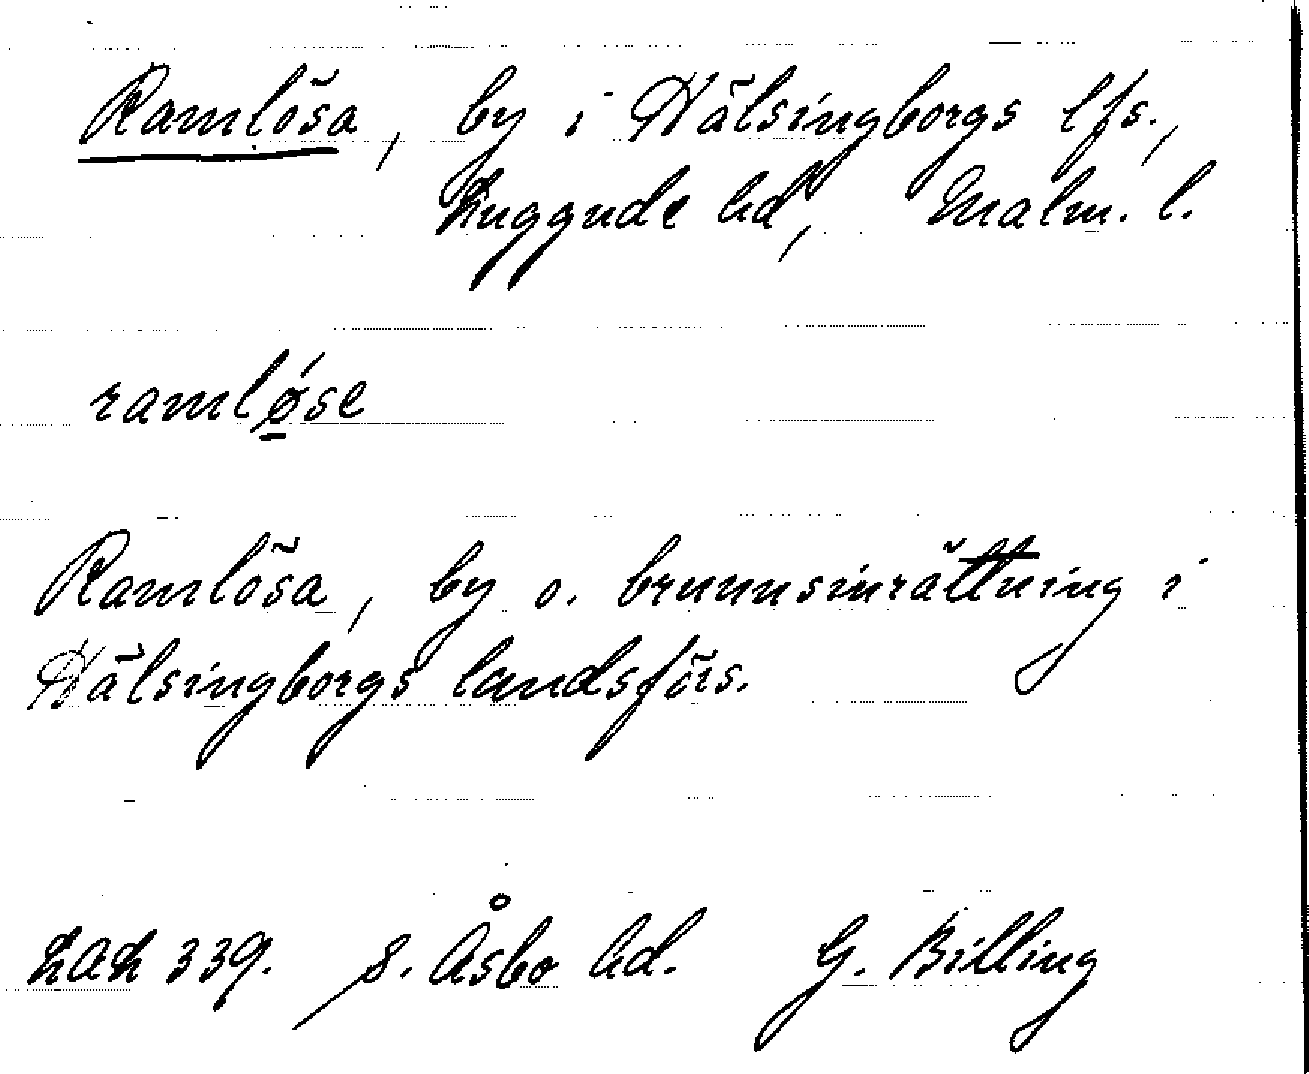 Ramlösa, by i Hälsingborgs lfs.,
Luggude hd, Malm. l.
ramløse
Ramlösa, by o. brunnsinrättning i
Hälsingborgs landsförs.
LAL 339. S. Åsbo hd. G. Billing